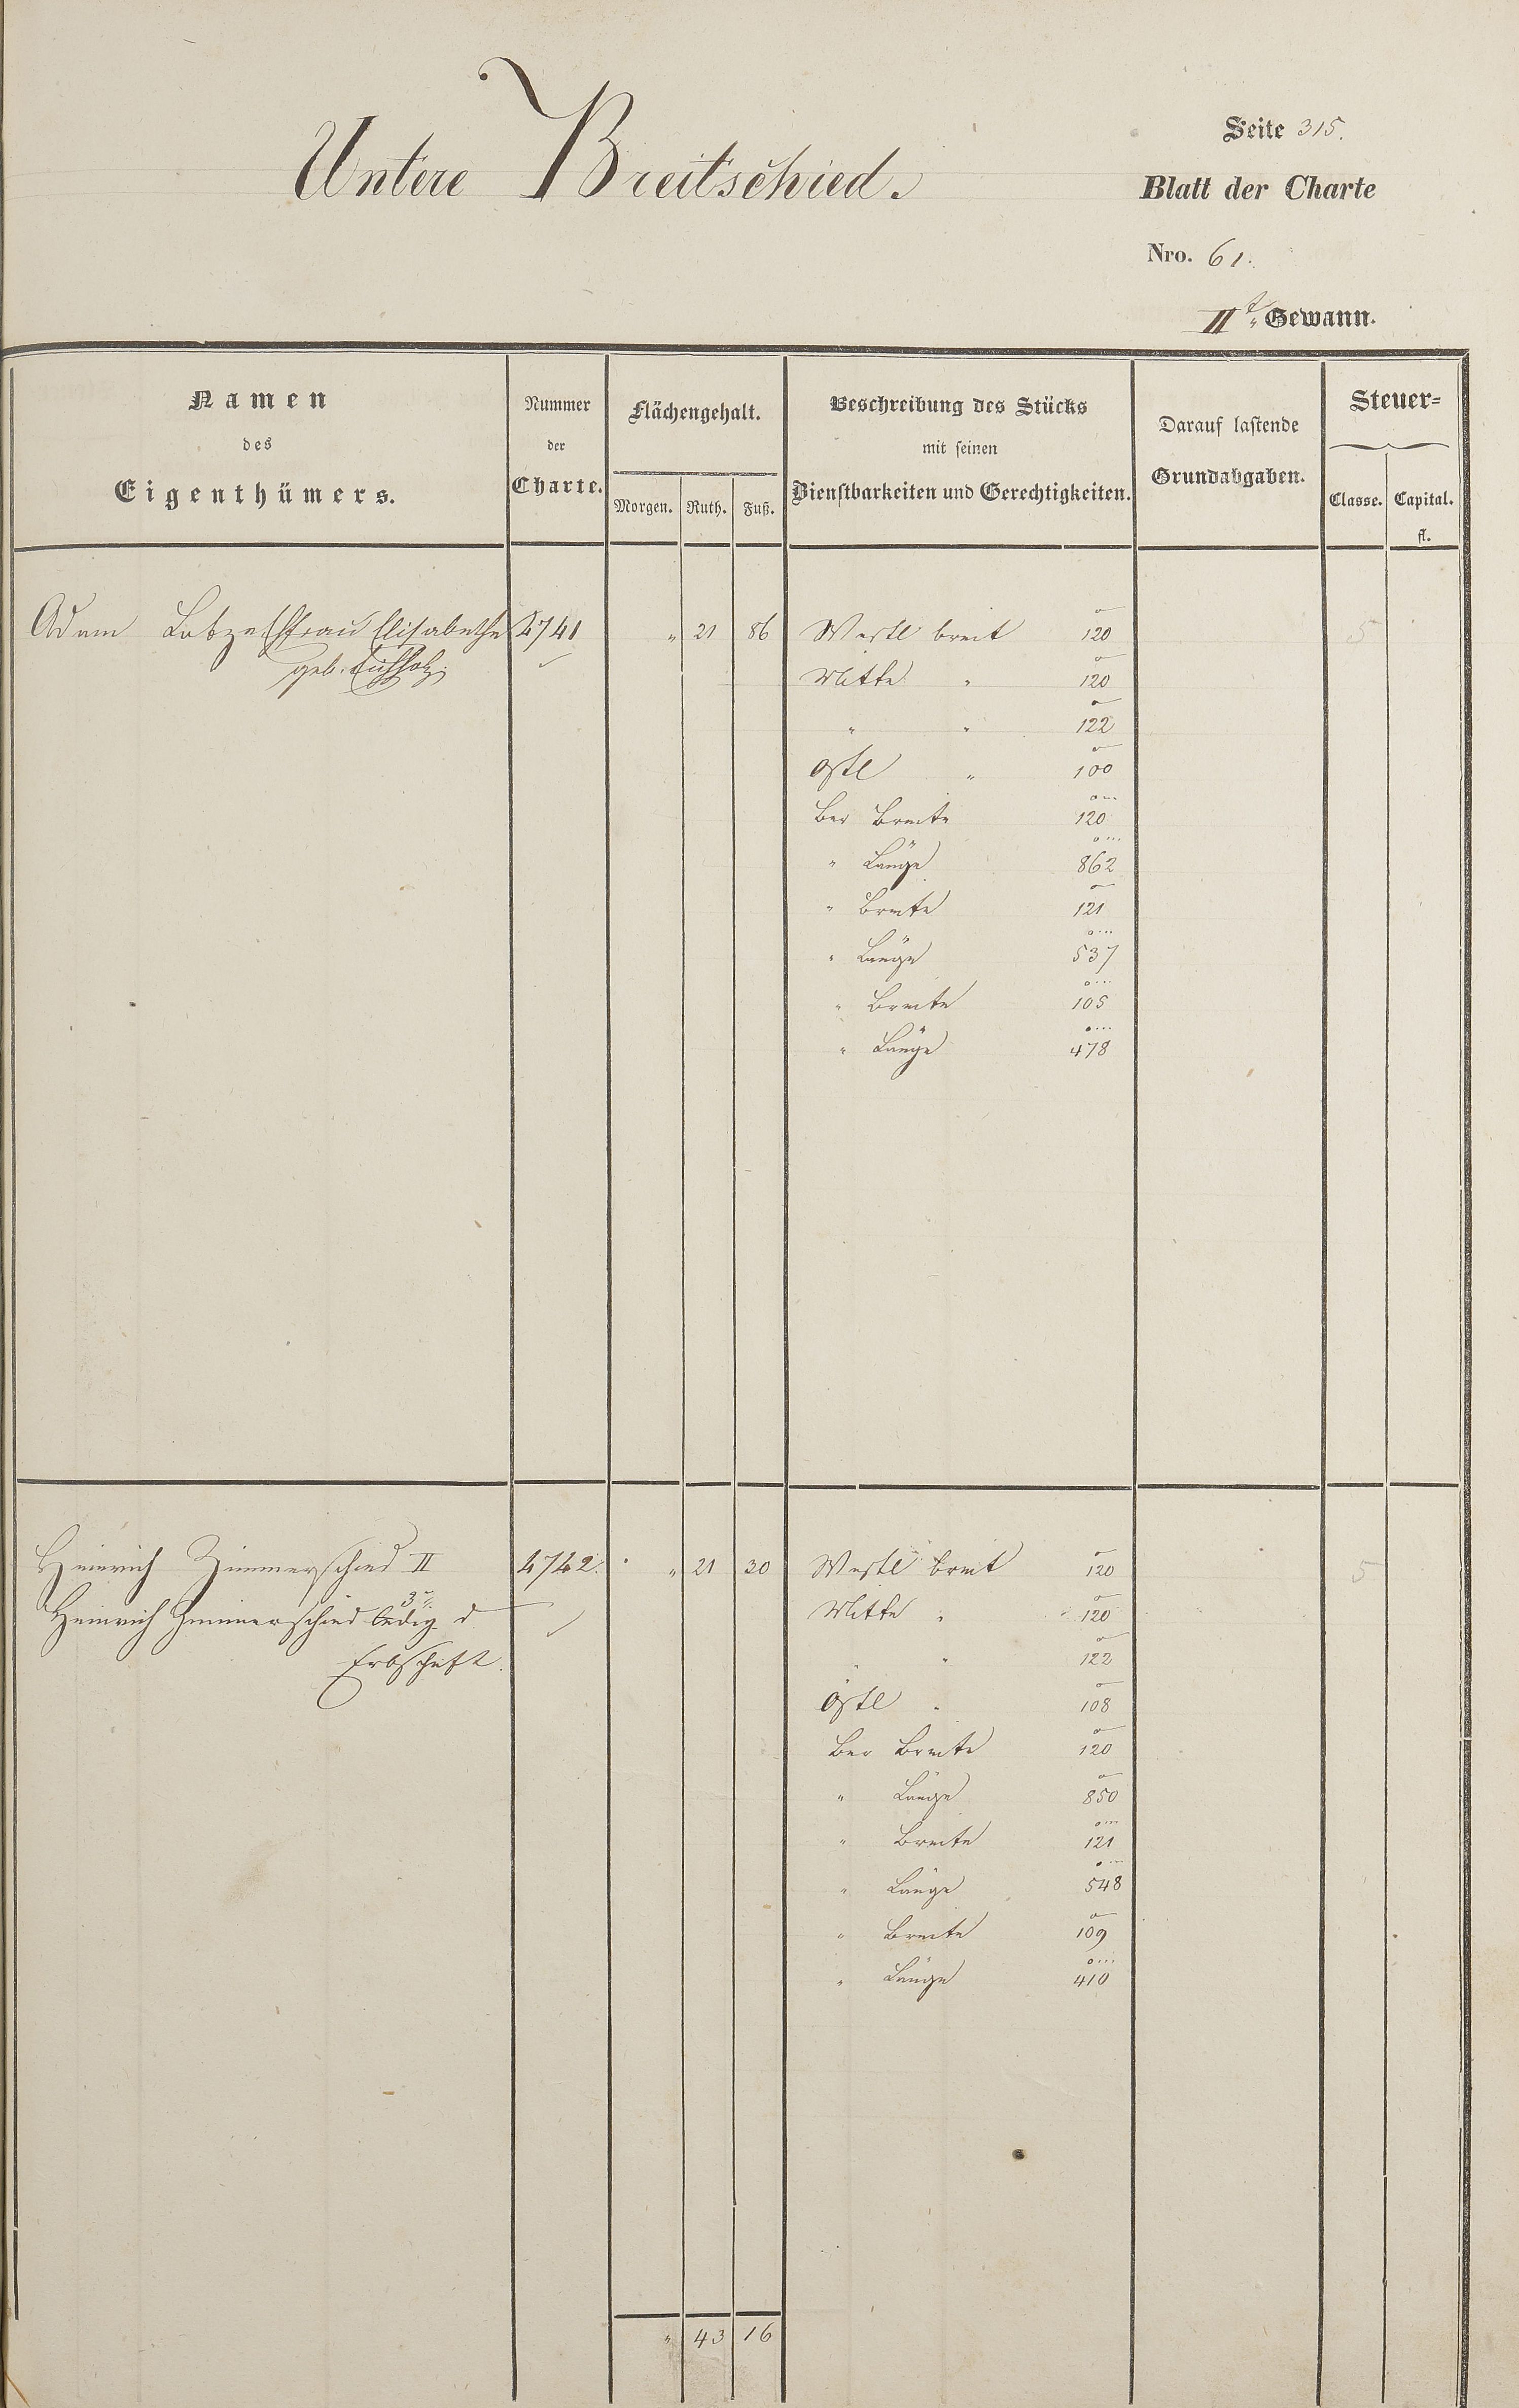 Untere Breitschied.
Seite 315.
Blatt der Charte
Nro. 61.
IIt. Gewann.
Namen
des
Eigenthümers.
Nummer
der
Charte.
Flächengehalt.
Morgen. Ruth. Fuß.
Beschreibung des Stücks
mit seinen
Dienstbarkeiten und Gerechtigkeiten.
Darauf lastende
Grundabgaben.
Steuer-
Classe. Capital.
fl.
Adam Frau Elisabetha 4741 " 21 86 Westl breit 120 5
geb. Mitte " 120
" " 122
Ostl " 100
Ber Breite 120
" Länge 862
" Breite 121
" Länge 537
" Breite 105
" Länge 478
Heinrich Zimmerschied II 4742. " 21 30 Westl breit 120 5
Heinrich Zimmerschied 3r ledig d Mitte " 120
Erbschaft. " " 122
Östl " 108
Ber Breite 120
" Länge 850
" Breite 121
" Länge 548
" Breite 109
" Länge 410
" 43 16